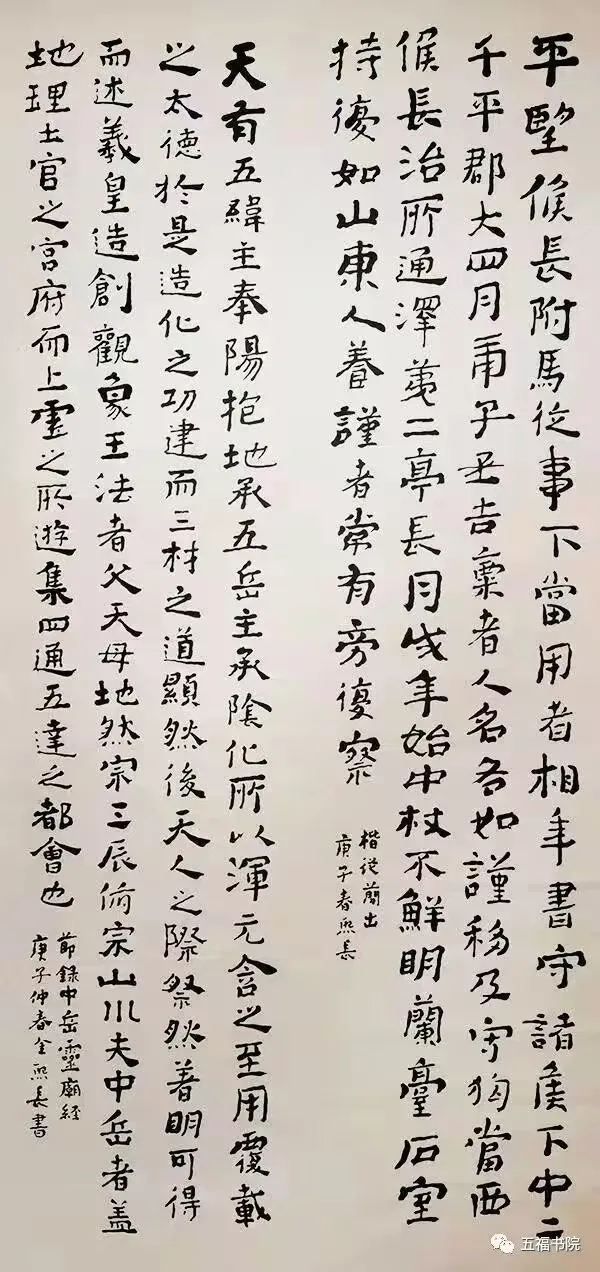 平望候長附馬從事下當用者相年書守諸侯下中二
千平郡大四月甬子丑吉稟者人名各如謹移及守狗當西
候長治所通澤第二亭長月戌年始中杖不鮮明蘭臺石室
持復如山東人養謹者常有旁復察
楷從簡出
庚子春熙長
天有五緯主奉陽抱地承五岳主承陰化所以渾元含之至用覆載
之太德於是造化之功建而三材之道顯然後天人之際祭然著明可得
而述羲皇造創觀象王法者父天母地然宗三辰俯宗山川夫中岳者盖
地理土官之宮府而上靈之所遊集四通五達之都會也
節錄中岳靈廟經
庚子仲春全熙長書
五福书院